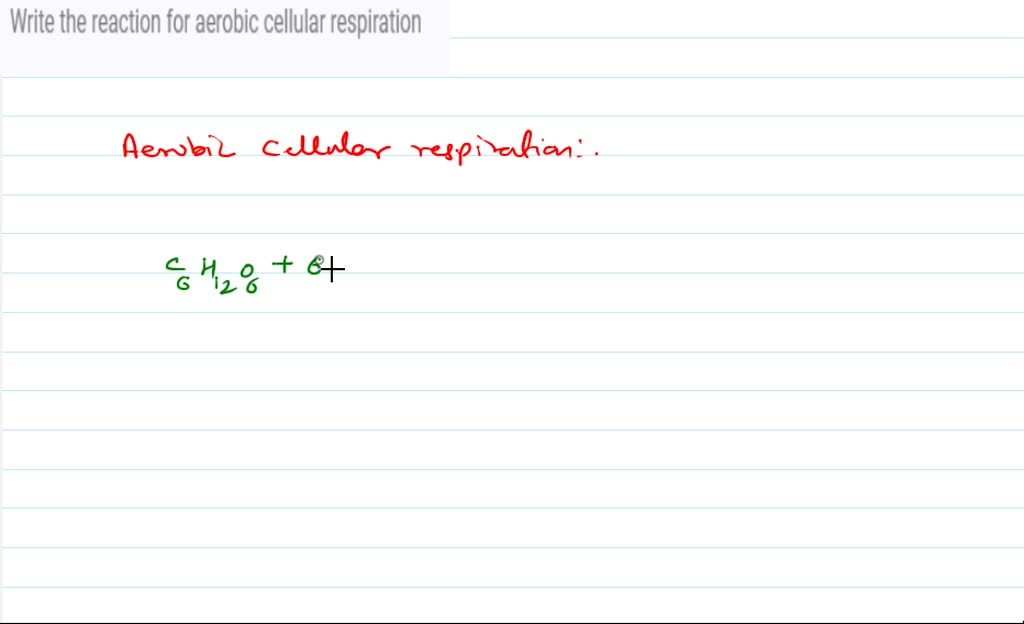 Write the reaction for aerobic cellular respiration
Aerobic cellular respiration:.
C6H12O6 + 6